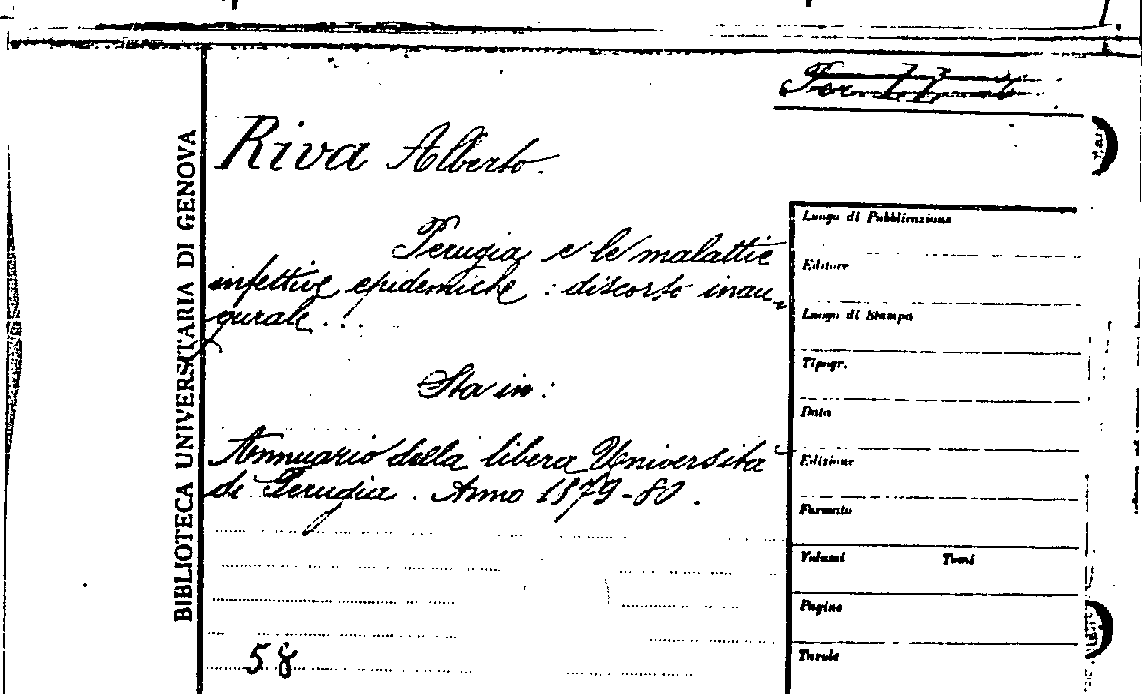 BIBLIOTECA UNIVERSITARIA DI GENOVA
Riva Alberto.
Perugia e le malattie
infettive epidemiche : discorso inau-
gurale...
Sta in:
Annuario della libera Università
di Perugia. Anno 1879-80.
58
Luogo di Pubblicazione
Editore
Luogo di Stampa
Tipogr.
Data
Edizione
Formato
Volumi Tomi
Pagine
Tavole